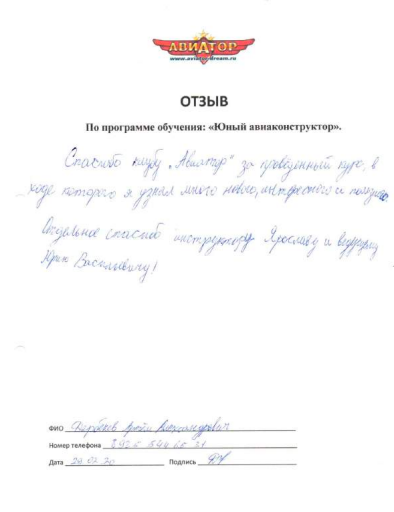 АВИАТОР
www.aviator-dream.ru
ОТЗЫВ
По программе обучения: «Юный авиаконструктор».
Спасибо клубу „Авиатор" за проведенный курс, в
ходе которого я узнал много нового, интересного и полезного
Отдельное спасибо инструктору Ярославу и ведущему
Юрию Васильевичу!
ФИО Артём Александрович
Номер телефона
Дата 29.02.20 Подпись